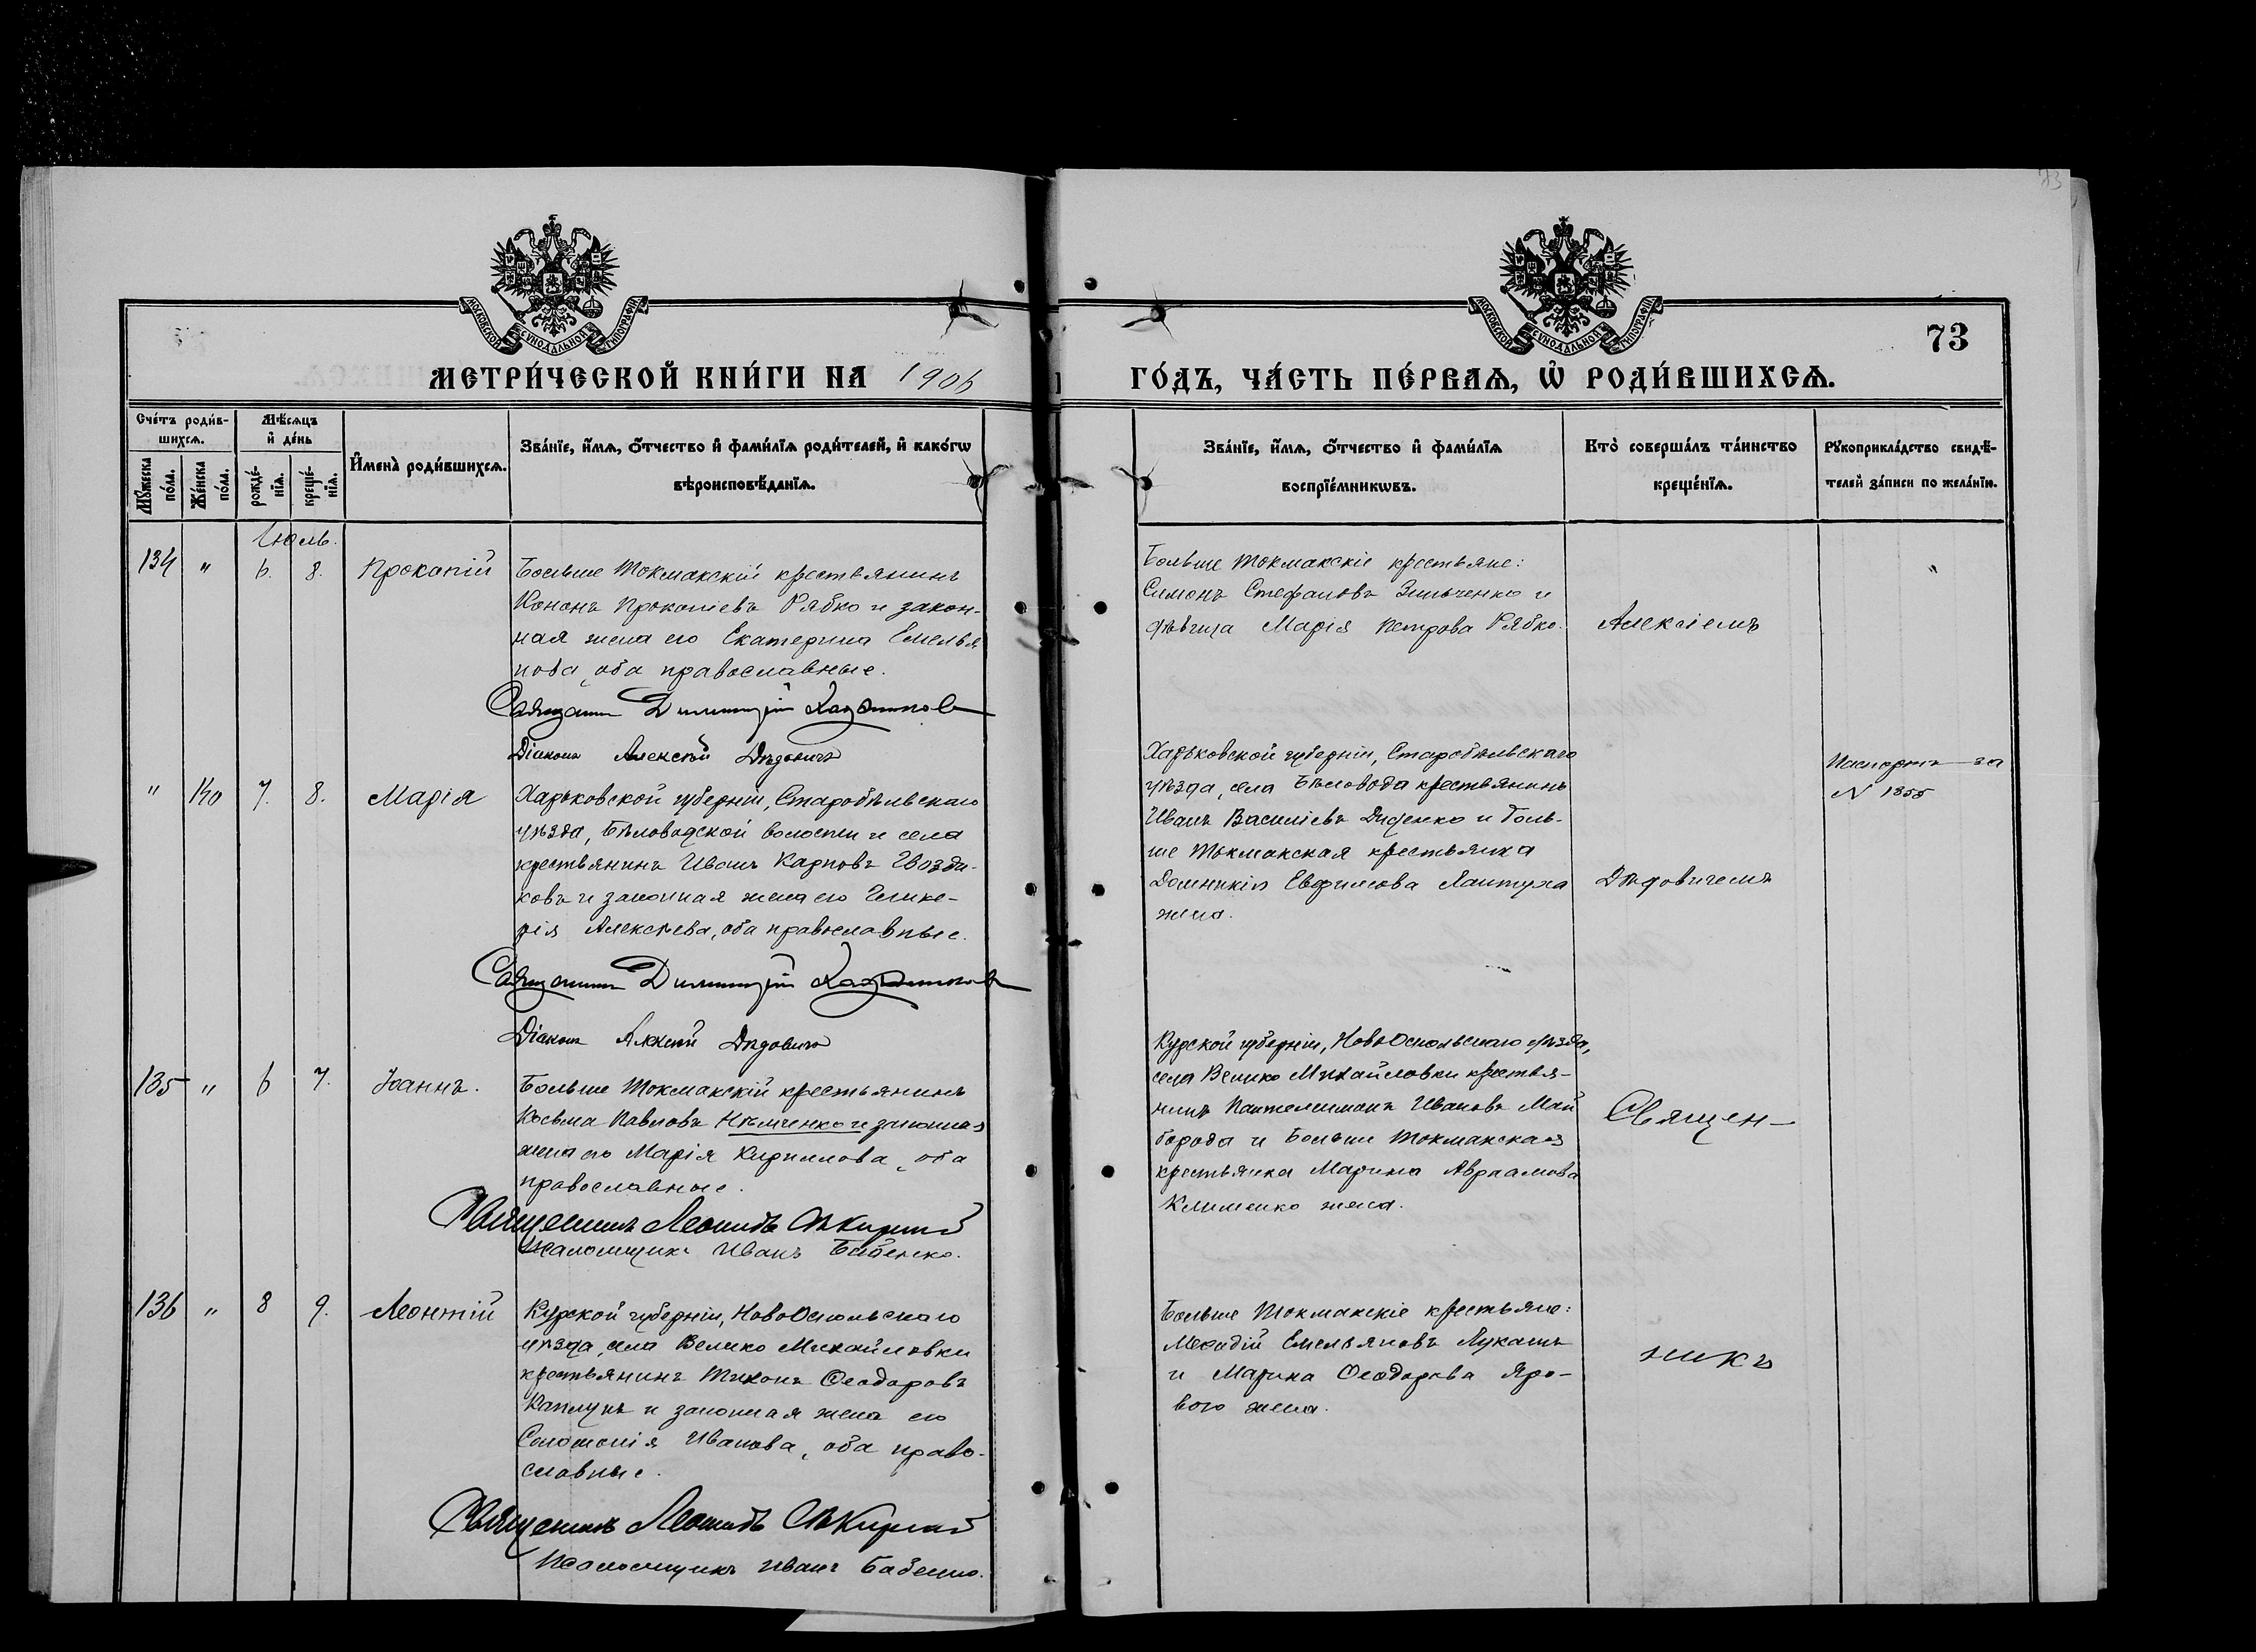 73
МОСКОВСКОЙ СѴНОДАЛЬНОЙ ТИПОГРАФІИ
МОСКОВСКОЙ СѴНОДАЛЬНОЙ ТИПОГРАФІИ
73
МЕТРИ́ЧЕСКОЙ КНИ́ГИ НА 1906
ГО́ДЪ, ЧА́СТЬ ПЕ́РВАѦ, Ѽ РОДИ́ВШИХСѦ.
Сче́тъ роди́в-
шихсѧ.
Мѣ́сѧцъ
и҆ де́нь
Мꙋ́жеска
по́ла.
Же́нска
по́ла.
рожде́-
нїѧ.
креще́-
нїѧ.
И҆мена̀ роди́вшихсѧ.
Зва́нїе, и҆́мѧ, ѻ҆́тчество и҆ фами́лїѧ роди́телей, и҆ како́гѡ
вѣроисповѣ́данїѧ.
Зва́нїе, и҆́мѧ, ѻ҆́тчество и҆ фами́лїѧ
воспрїе́мникѡвъ.
Кто̀ соверша́лъ та́инство
креще́нїѧ.
Рꙋкоприкла́дство свидѣ́-
телей за́писи по жела́нїю.
Іюль.
134 " 6. 8. Прокопій
Больше Токмакскій крестьянинъ
Кононъ Прокопіевъ Рябко и закон-
ная жена его Екатерина Емелья
нова, оба православные.
Священникъ Димитрій
Діаконъ Алексѣй Дѣдовичъ
Больше Токмакскіе крестьяне:
Симонъ Стефановъ Зинченко и
дѣвица Марія Петрова Рябко.
Алексіемъ
"
" 140 7. 8. Марія
Харьковской губерніи, Старобѣльскаго
уѣзда, Бѣловодской волости и села
крестьянинъ Иванъ Карповъ Гвозди-
ковъ и законная жена его Глике-
рія Алексѣева, оба православные.
Священникъ Димитрій
Діаконъ Алексѣй Дѣдовичъ
Харьковской губерніи, Старобѣльскаго
уѣзда, села Бѣловода крестьянинъ
Иванъ Василіевъ Диденко и Боль-
ше Токмакская крестьянка
Домникія Евфимова Лантуха
жена.
Дѣдовичемъ
Паспортъ за
N 1855
135 " 6 7. Іоаннъ.
Больше Токмакскій крестьянинъ
Косьма Павловъ Нѣмченко и законная
жена его Марія Кириллова, оба
православные.
Священникъ Леонидъ
Псаломщикъ Иванъ Бабенко.
Курской губерніи, НовоОскольскаго уѣзда,
села Велико Михайловки крестья-
нинъ Пантелеимонъ Ивановъ Май
борода и Больше Токмакская
крестьянка Марина Авраамова
Клименко жена.
Священ-
136 " 8 9. Леонтій
Курской губерніи, НовоОскольскаго
уѣзда, села Велико Михайловки
крестьянинъ Тихонъ Ѳеодоровъ
Каплунъ и законная жена его
Соломонія Иванова, оба право-
славные.
Священникъ Леонидъ
Псаломщикъ Иванъ Бабенко.
Больше Токмакскіе крестьяне:
Меѳодій Емельяновъ Лукашъ
и Марина Ѳеодорова Яро-
вого жена.
никъ